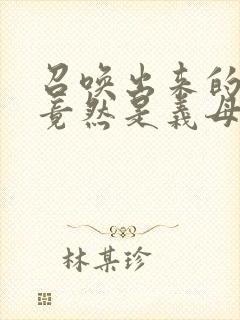 召唤出来的
竟然是义母
林某珍